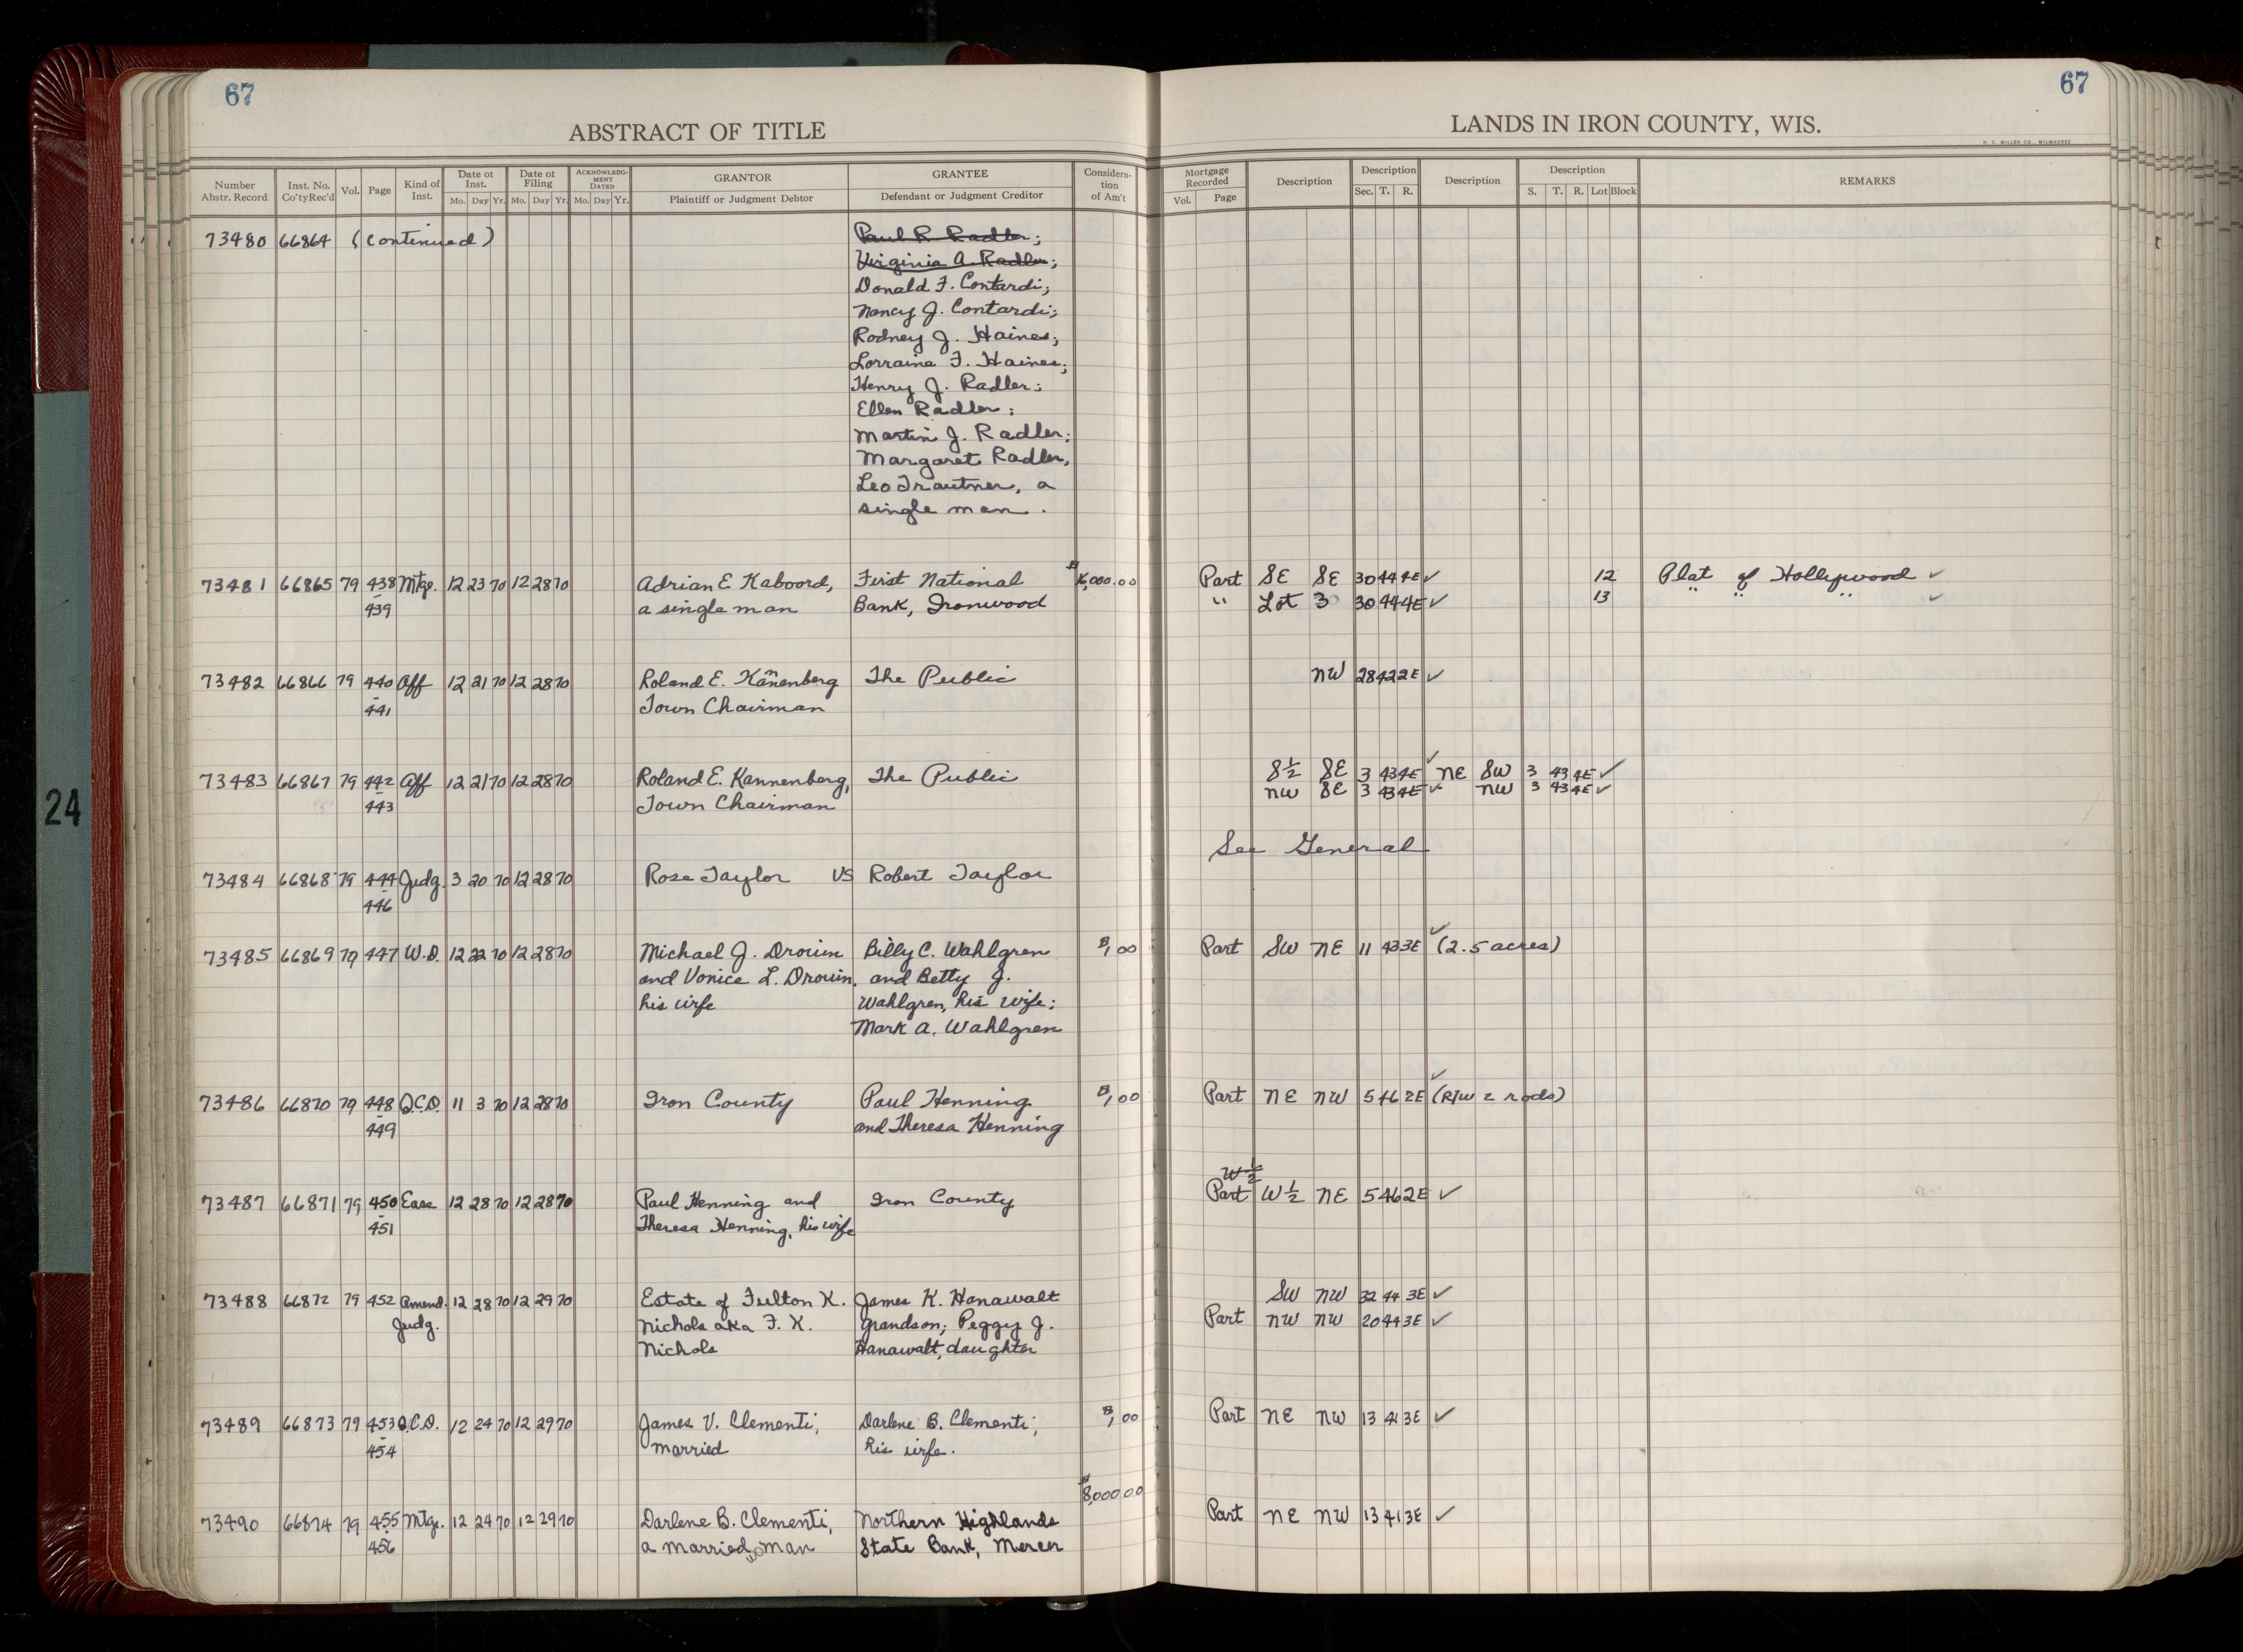 67
67
ABSTRACT OF TITLE
LANDS IN IRON COUNTY, WIS.
H. C. MILLER CO., MILWAUKEE
Number Abstr. Record | Inst. No. Co'ty Rec'd | Vol. | Page | Kind of Inst. | Date of Inst. Mo. Day Yr. | Date of Filing Mo. Day Yr. | ACKNOWLEDGMENT DATED Mo. Day Yr. | GRANTOR Plaintiff or Judgment Debtor | GRANTEE Defendant or Judgment Creditor | Consideration of Am't | Mortgage Recorded Vol. Page | Description | Description Sec. T. R. | Description | Description S. T. R. Lot Block | REMARKS
73480 66864 (continued) Paul R. Radler;
Virginia A. Radler;
Donald F. Contardi;
Nancy J. Contardi;
Rodney J. Haines;
Lorraine F. Haines;
Henry J. Radler;
Ellen Radler;
Martin J. Radler;
Margaret Radler,
Leo Trautner, a
single man.
73481 66865 79 438 Mtge. 12 23 70 12 28 70 Adrian E Kaboord, First National $ 000.00 Part SE SE 30 44 4E ✓ 12 Plat of Hollywood ✓
439 a single man Bank, Ironwood " Lot 3 30 44 4E ✓ 13 " " " ✓
73482 66866 79 440 Aff 12 21 70 12 28 70 Roland E. Kannenberg The Public NW 28 42 2E ✓
441 Town Chairman
73483 66867 79 442 Aff 12 21 70 12 28 70 Roland E. Kannenberg, The Public S½ SE 3 43 4E ✓ NE SW 3 43 4E ✓
443 Town Chairman NW SE 3 43 4E ✓ NW 3 43 4E ✓
See General
73484 66868 79 444 Judg. 3 20 70 12 28 70 Rose Taylor VS Robert Taylor
446
73485 66869 79 447 W.D. 12 22 70 12 28 70 Michael J. Drouin Billy C. Wahlgren $1,00 Part SW NE 11 43 3E ✓ (2.5 acres)
and Vonice L. Drouin, and Betty J.
his wife Wahlgren, his wife;
Mark A. Wahlgren
73486 66870 79 448 Q.C.D. 11 3 70 12 28 70 Iron County Paul Henning $1,00 Part NE NW 5 46 2E ✓ (R/W 2 rods)
449 and Theresa Henning
W½
73487 66871 79 450 Ease 12 28 70 12 28 70 Paul Henning and Iron County Part W½ NE 5 46 2E ✓
451 Theresa Henning, his wife
73488 66872 79 452 Amend. 12 28 70 12 29 70 Estate of Fulton K. James K. Hanawalt SW NW 32 44 3E ✓
Judg. Nichols aka F. K. grandson; Peggy J. Part NW NW 20 44 3E ✓
Nichols Hanawalt, daughter
73489 66873 79 453 Q.C.D. 12 24 70 12 29 70 James V. Clementi, Darlene B. Clementi, $1,00 Part NE NW 13 41 3E ✓
454 married his wife.
$8,000.00
73490 66874 79 455 Mtge. 12 24 70 12 29 70 Darlene B. Clementi, Northern Highlands Part NE NW 13 41 3E ✓
456 a married woman State Bank, Mercer
24